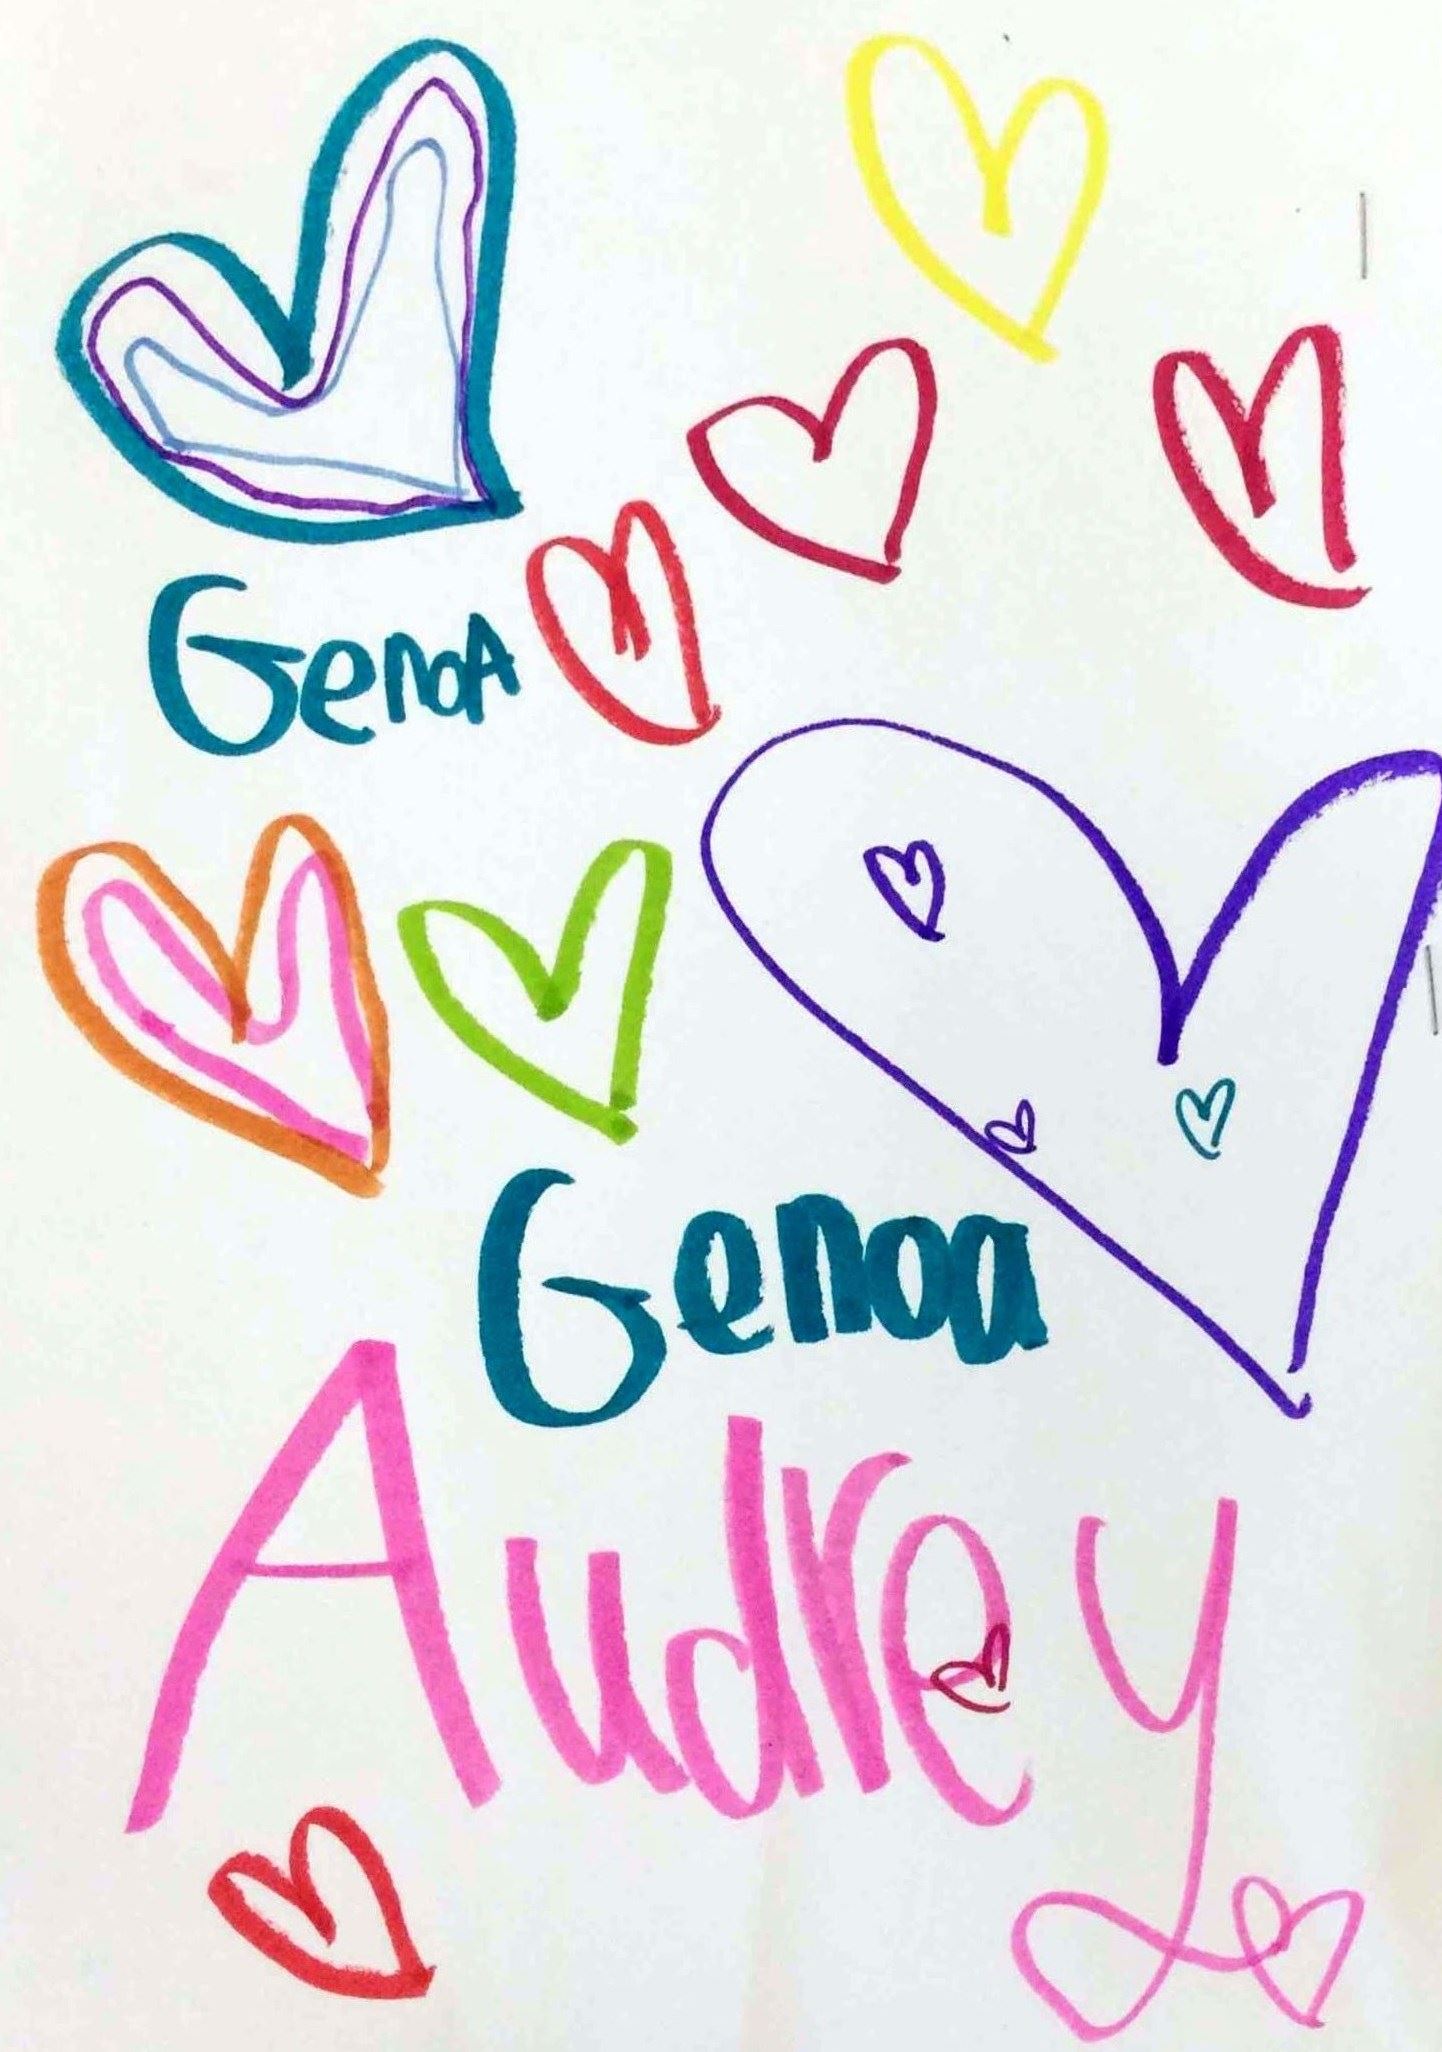 GenoA
Genoa
Audrey